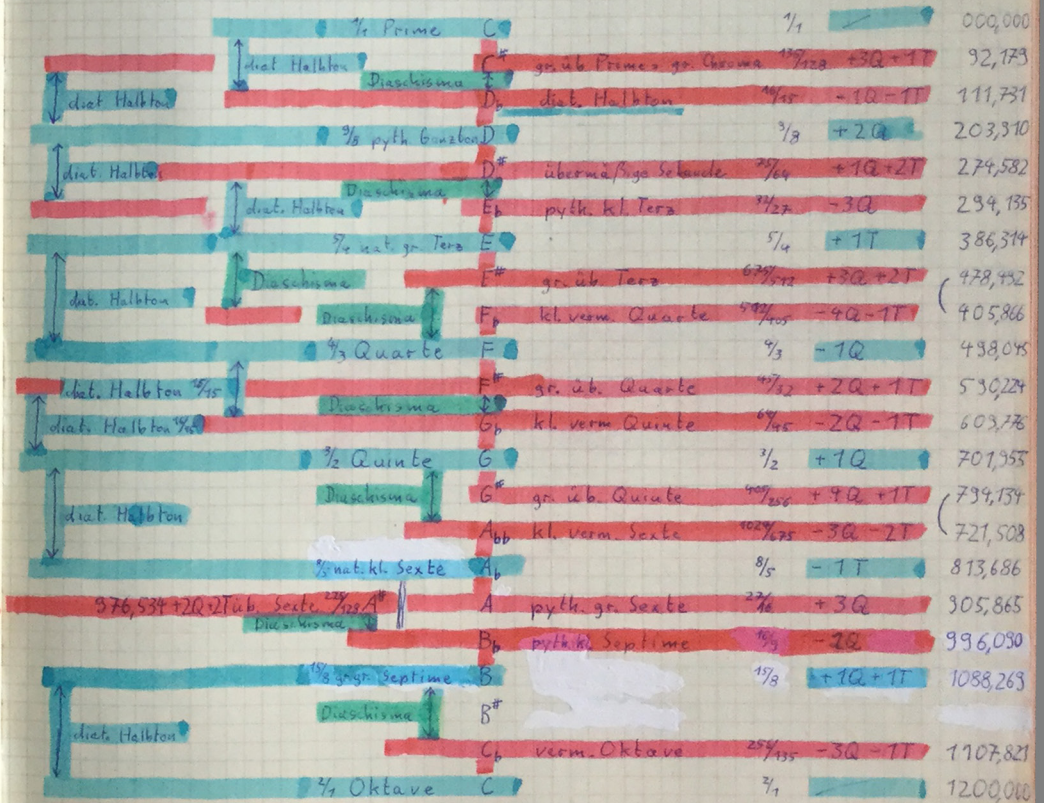 1/1 Prime C 1/1 000,000
diat Halbton C# gr. üb. Prime > gr. Chroma 135/128 +3Q +1T 92,179
Diaschisma
diat Halbton Db diat. Halbton 16/15 -1Q -1T 111,731
9/8 pyth Ganzton D 9/8 +2Q 203,910
diat Halbton D# übermäßige Sekunde 75/64 +1Q +2T 274,582
Diaschisma
diat. Halbton Eb pyth. kl. Terz 32/27 -3Q 294,135
5/4 nat. gr. Terz E 5/4 +1T 386,314
Diaschisma E# gr. üb. Terz 675/512 +3Q +2T 478,492
diat. Halbton
Diaschisma Fb kl. verm. Quarte 512/405 -4Q -1T 405,866
4/3 Quarte F 4/3 -1Q 498,045
diat. Halbton 16/15 F# gr. üb. Quarte 45/32 +2Q +1T 590,224
Diaschisma
diat. Halbton 16/15 Gb kl. verm Quinte 64/45 -2Q -1T 609,776
3/2 Quinte G 3/2 +1Q 701,955
Diaschisma G# gr. üb. Quinte 405/256 +4Q +1T 794,134
diat. Halbton
Abb kl. verm. Sexte 1024/675 -3Q -2T 721,508
8/5 nat. kl. Sexte Ab 8/5 -1T 813,686
976,534 +2Q+2T üb. Sexte 225/128 A# A pyth. gr. Sexte 27/16 +3Q 905,865
Diaschisma
Bb pyth kl. Septime 16/9 -2Q 996,090
15/8 gr. Septime B 15/8 +1Q +1T 1088,269
Diaschisma B#
diat. Halbton
Cb verm. Oktave 256/135 -3Q -1T 1107,821
2/1 Oktave C 2/1 1200,000